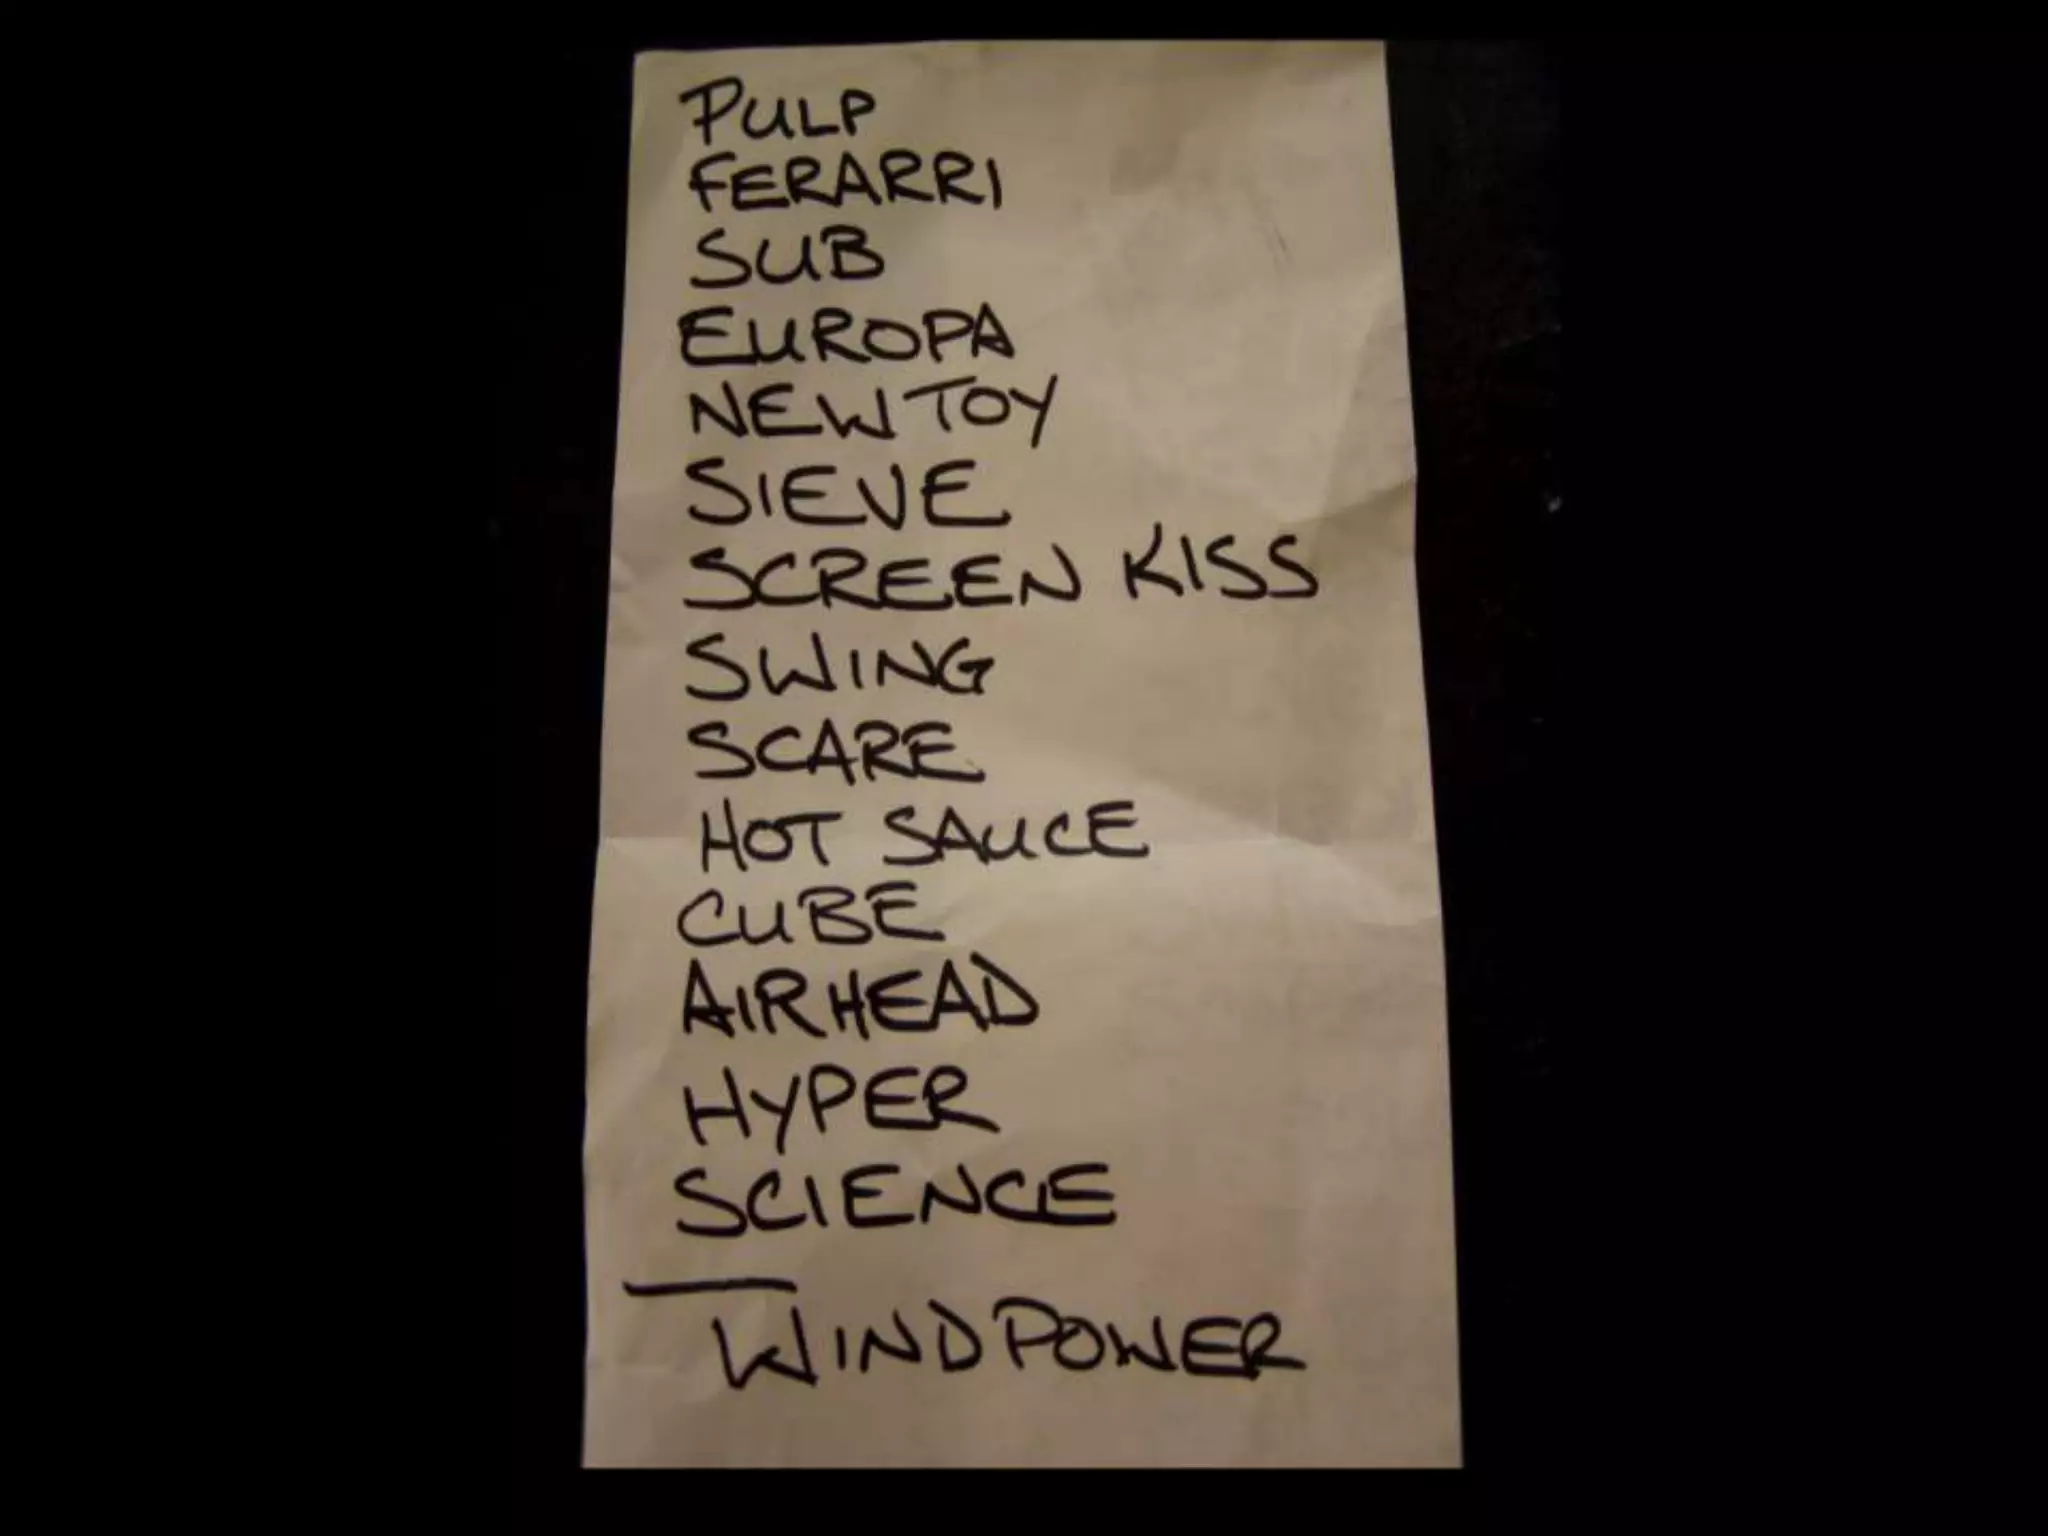 PULP
FERARRI
SUB
EUROPA
NEW TOY
SIEVE
SCREEN KISS
SWING
SCARE
HOT SAUCE
CUBE
AIRHEAD
HYPER
SCIENCE
WINDPOWER